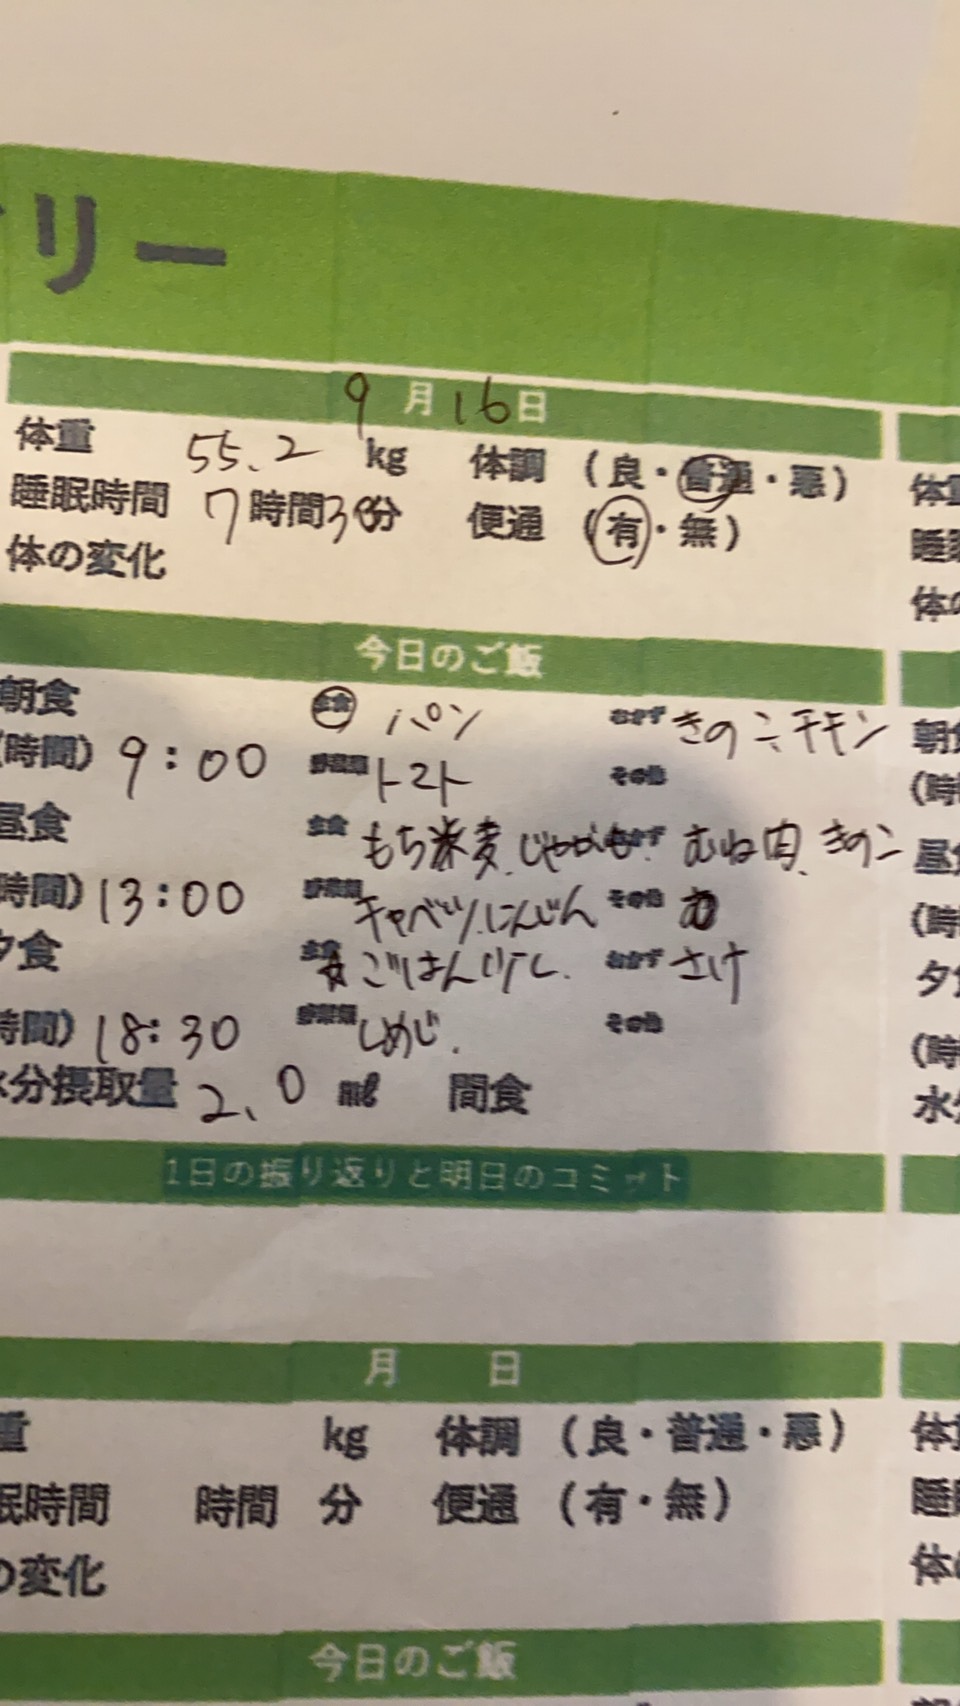 リー
9月16日
体重 55.2 kg 体調 (良・普通・悪)
睡眠時間 7時間30分 便通 (有・無)
体の変化
今日のご飯
朝食 主食 パン おかず きのこ、チキン
(時間) 9:00 野菜類 トマト その他
昼食 主食 もち米麦、じゃがいも おかず むね肉、きのこ
時間) 13:00 野菜類 キャベツ、にんじん その他
夕食 主食 ごはん少し おかず さけ
時間) 18:30 野菜類 しめじ その他
水分摂取量 2.0 ml 間食
1日の振り返りと明日のコミット
月 日
重 kg 体調 (良・普通・悪)
眠時間 時間 分 便通 (有・無)
の変化
今日のご飯
体重
睡眠
体の
朝食
(時
昼食
(時
夕食
(時
水分
体重
睡
体の